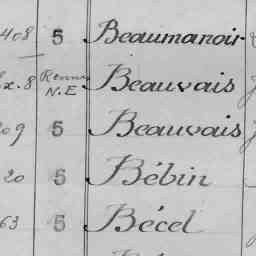 408 5 Beaumanoir
x. 8 Rennes N.E Beauvais
209 5 Beauvais
20 5 Bébin
63 5 Bécel